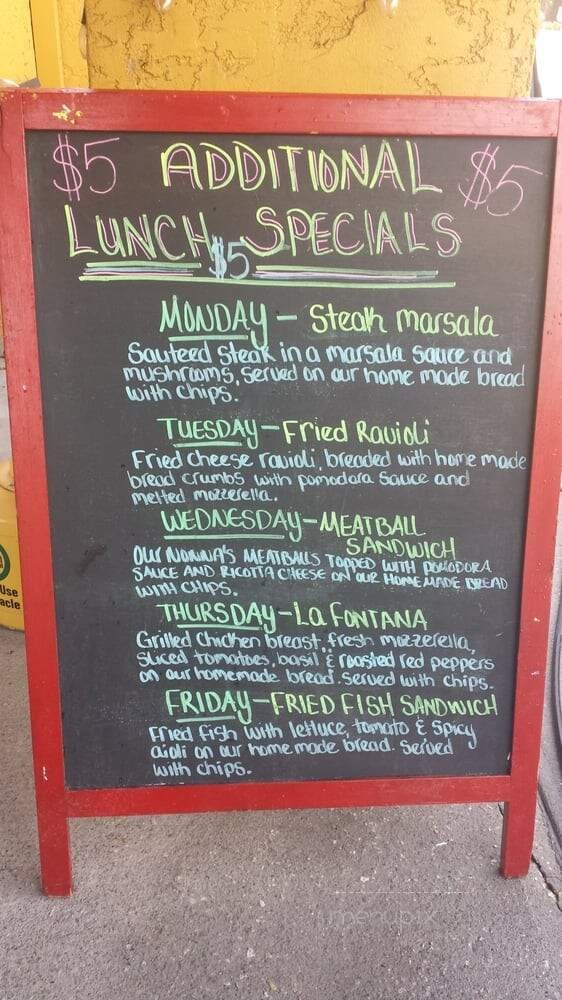 $5 ADDITIONAL $5
LUNCH $5 SPECIALS
MONDAY - Steak marsala
Sauteed steak in a marsala sauce and
mushrooms, served on our home made bread
with chips.
TUESDAY - Fried Ravioli
Fried cheese ravioli, breaded with home made
bread crumbs with pomodara sauce and
melted mozzerella.
WEDNESDAY - MEATBALL
SANDWICH
OUR NONNA'S MEATBALLS TOPPED WITH POMODORA
SAUCE AND RICOTTA CHEESE ON OUR HOMEMADE BREAD
WITH CHIPS.
THURSDAY - La FONTANA
Grilled Chicken breast, fresh mozzerella,
sliced tomatoes, basil & roasted red peppers
on our homemade bread. served with chips.
FRIDAY - FRIED FISH SANDWICH
Fried fish with lettuce, tomato & spicy
aioli on our home made bread. Served
with chips.
Use
acle
menupix